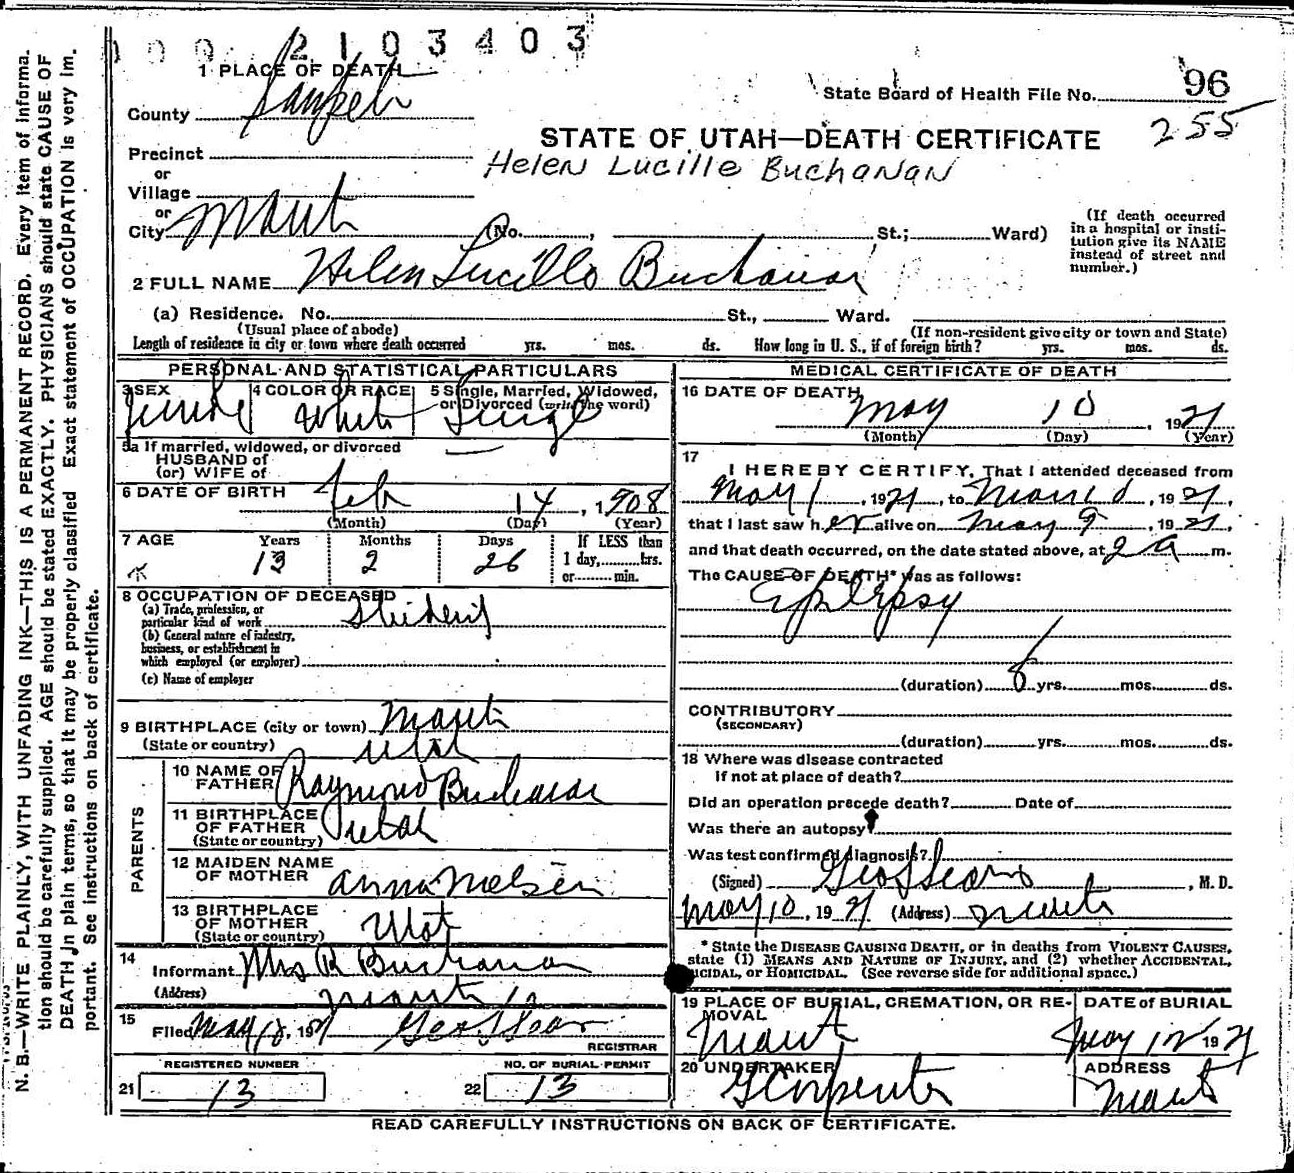 2103403
1 PLACE OF DEATH
County Sanpete
State Board of Health File No. 96
255
STATE OF UTAH—DEATH CERTIFICATE
Helen Lucille Buchanan
Precinct
or
Village
or
City Manti (No. , St.; Ward)
(If death occurred
in a hospital or insti-
tution give its NAME
instead of street and
number.)
2 FULL NAME Helen Lucille Buchanan
(a) Residence. No. St., Ward.
(Usual place of abode) (If non-resident give city or town and State)
Length of residence in city or town where death occurred yrs. mos. ds. How long in U. S., if of foreign birth? yrs. mos. ds.
PERSONAL AND STATISTICAL PARTICULARS
3 SEX Female
4 COLOR OR RACE White
5 Single, Married, Widowed,
or Divorced (write the word)
Single
5a If married, widowed, or divorced
HUSBAND of
(or) WIFE of
6 DATE OF BIRTH Feb 14, 1908
(Month) (Day) (Year)
7 AGE Years Months Days If LESS than
1 day, hrs.
or min.
13 2 26
8 OCCUPATION OF DECEASED
(a) Trade, profession, or
particular kind of work student
(b) General nature of industry,
business, or establishment in
which employed (or employer)
(c) Name of employer
9 BIRTHPLACE (city or town) Manti
(State or country) Utah
PARENTS
10 NAME OF
FATHER Raymond Buchanan
11 BIRTHPLACE
OF FATHER
(State or country) Utah
12 MAIDEN NAME
OF MOTHER Anna Nielsen
13 BIRTHPLACE
OF MOTHER
(State or country) Utah
14
Informant Mrs R Buchanan
(Address) Manti
15
Filed May 12, 1921 Geo L Sears
REGISTRAR
REGISTERED NUMBER
21 13
NO. OF BURIAL PERMIT
22 13
MEDICAL CERTIFICATE OF DEATH
16 DATE OF DEATH May 10, 1921
(Month) (Day) (Year)
17
I HEREBY CERTIFY, That I attended deceased from
May 1, 1921, to May 10, 1921,
that I last saw her alive on May 9, 1921,
and that death occurred, on the date stated above, at 2 a m.
The CAUSE OF DEATH* was as follows:
Epilepsy
(duration) 8 yrs. mos. ds.
CONTRIBUTORY
(SECONDARY)
(duration) yrs. mos. ds.
18 Where was disease contracted
if not at place of death?
Did an operation precede death? Date of
Was there an autopsy?
Was test confirmed diagnosis?
(Signed) Geo L Sears, M. D.
May 10, 1921 (Address) Manti
* State the DISEASE CAUSING DEATH, or in deaths from VIOLENT CAUSES,
state (1) MEANS AND NATURE OF INJURY, and (2) whether ACCIDENTAL,
SUICIDAL, or HOMICIDAL. (See reverse side for additional space.)
19 PLACE OF BURIAL, CREMATION, OR RE-
MOVAL
Manti
DATE of BURIAL
May 12 1921
20 UNDERTAKER
G Carpenter
ADDRESS
Manti
READ CAREFULLY INSTRUCTIONS ON BACK OF CERTIFICATE.
N. B.—WRITE PLAINLY, WITH UNFADING INK—THIS IS A PERMANENT RECORD. Every item of informa-
tion should be carefully supplied. AGE should be stated EXACTLY. PHYSICIANS should state CAUSE OF
DEATH in plain terms, so that it may be properly classified. Exact statement of OCCUPATION is very im-
portant. See instructions on back of certificate.